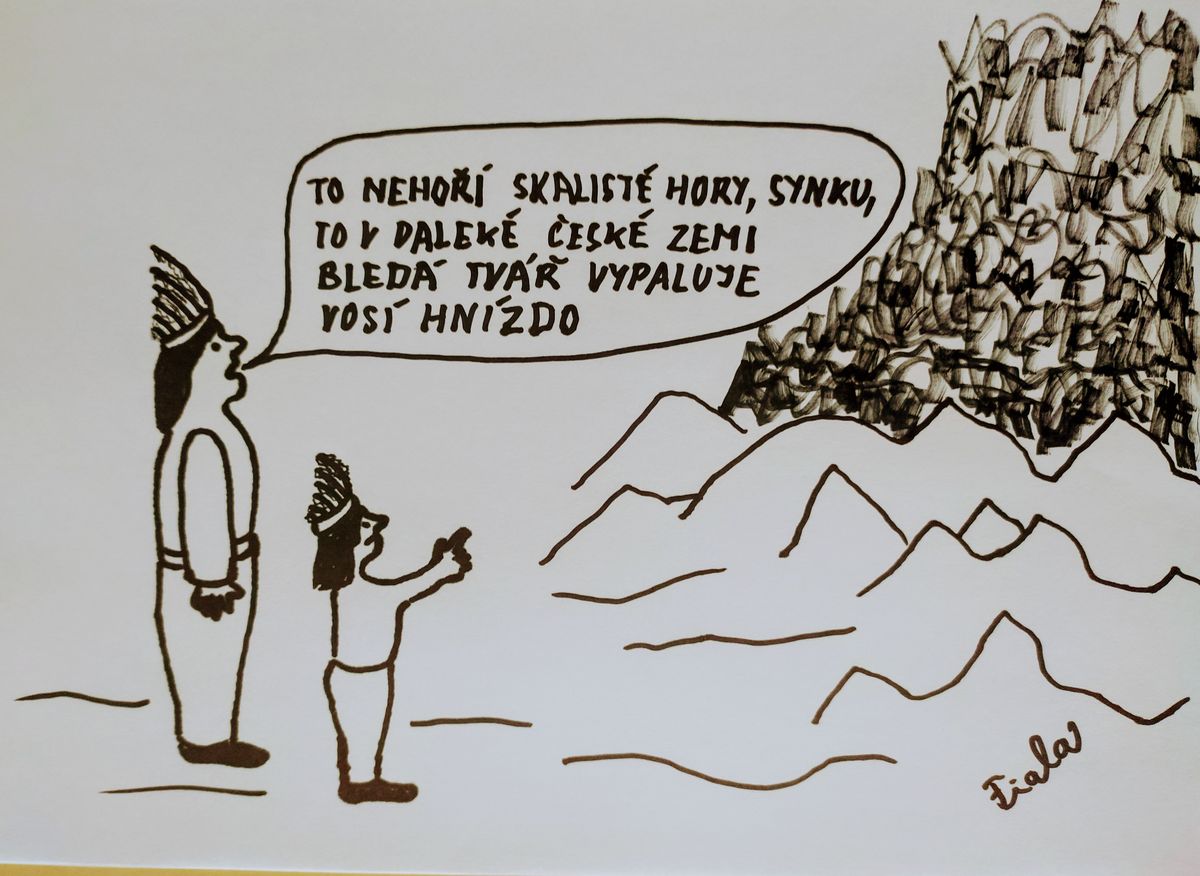 TO NEHOŘÍ SKALISTÉ HORY, SYNKU,
TO V DALEKÉ ČESKÉ ZEMI
BLEDÁ TVÁŘ VYPALUJE
VOSÍ HNÍZDO
Fiala